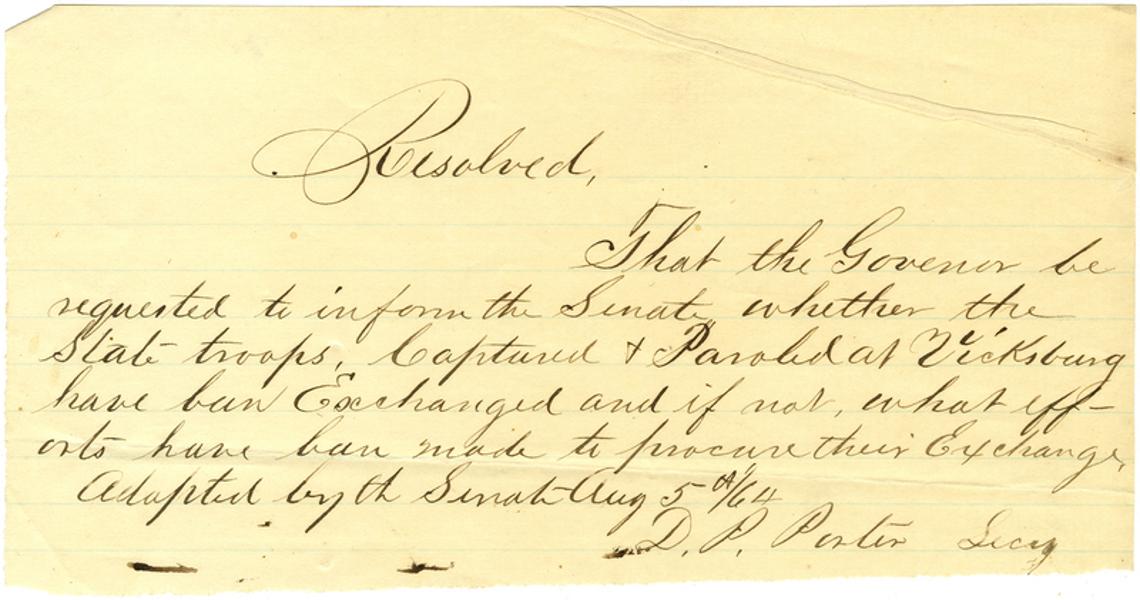 Resolved,
That the Govenor be
requested to inform the Senate, whether the
State troops, Captured & Paroled at Vicksburg
have been Exchanged and if not, what eff-
orts have been made to procure their Exchange,
Adopted by th Senate Aug 5th/64
D. P. Porter Secy